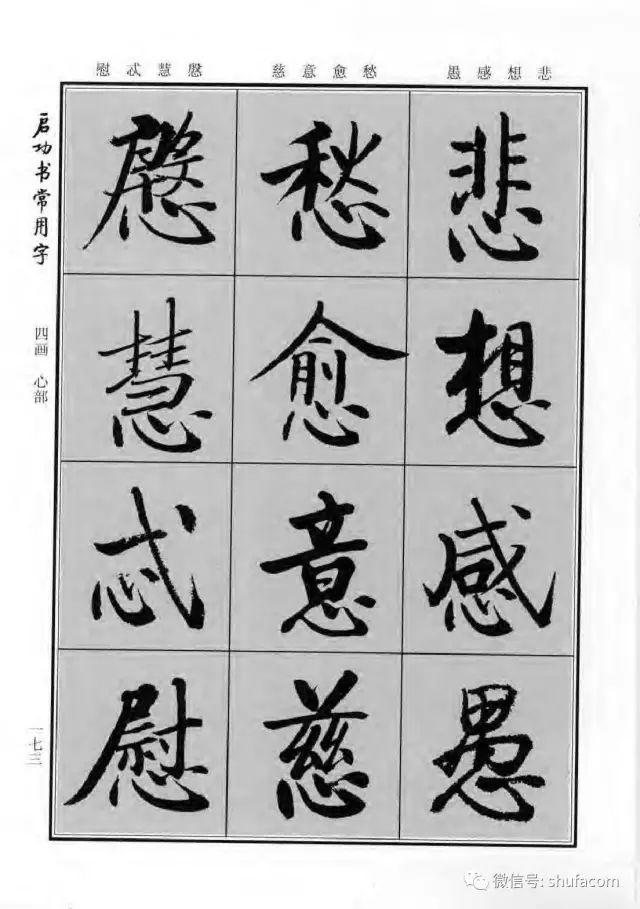 悲想感愚
愁愈意慈
慇慧忒慰
悲想感愚
愁愈意慈
慇慧忒慰
启功书常用字
四画 心部
一七三
微信号: shufacom